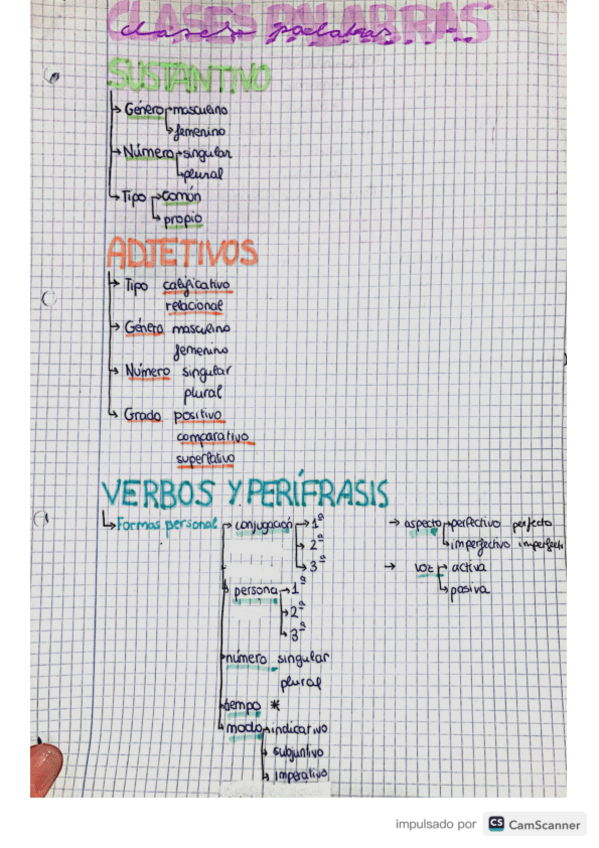 CLASES PALABRAS
clases palabras
SUSTANTIVO
→ Género → masculino
→ femenino
→ Número → singular
→ plural
→ Tipo → común
→ propio
ADJETIVOS
→ Tipo calificativo
relacional
→ Género masculino
femenino
→ Número singular
plural
→ Grado positivo
comparativo
superlativo
VERBOS Y PERÍFRASIS
→ Formas personal → conjugación → 1ª
→ 2ª
→ 3ª
→ persona → 1ª
→ 2ª
→ 3ª
→ número singular
plural
→ tiempo *
→ modo → indicativo
→ subjuntivo
→ imperativo
→ aspecto → perfectivo perfecto
→ imperfectivo imperfecti
→ voz → activa
→ pasiva
impulsado por CS CamScanner